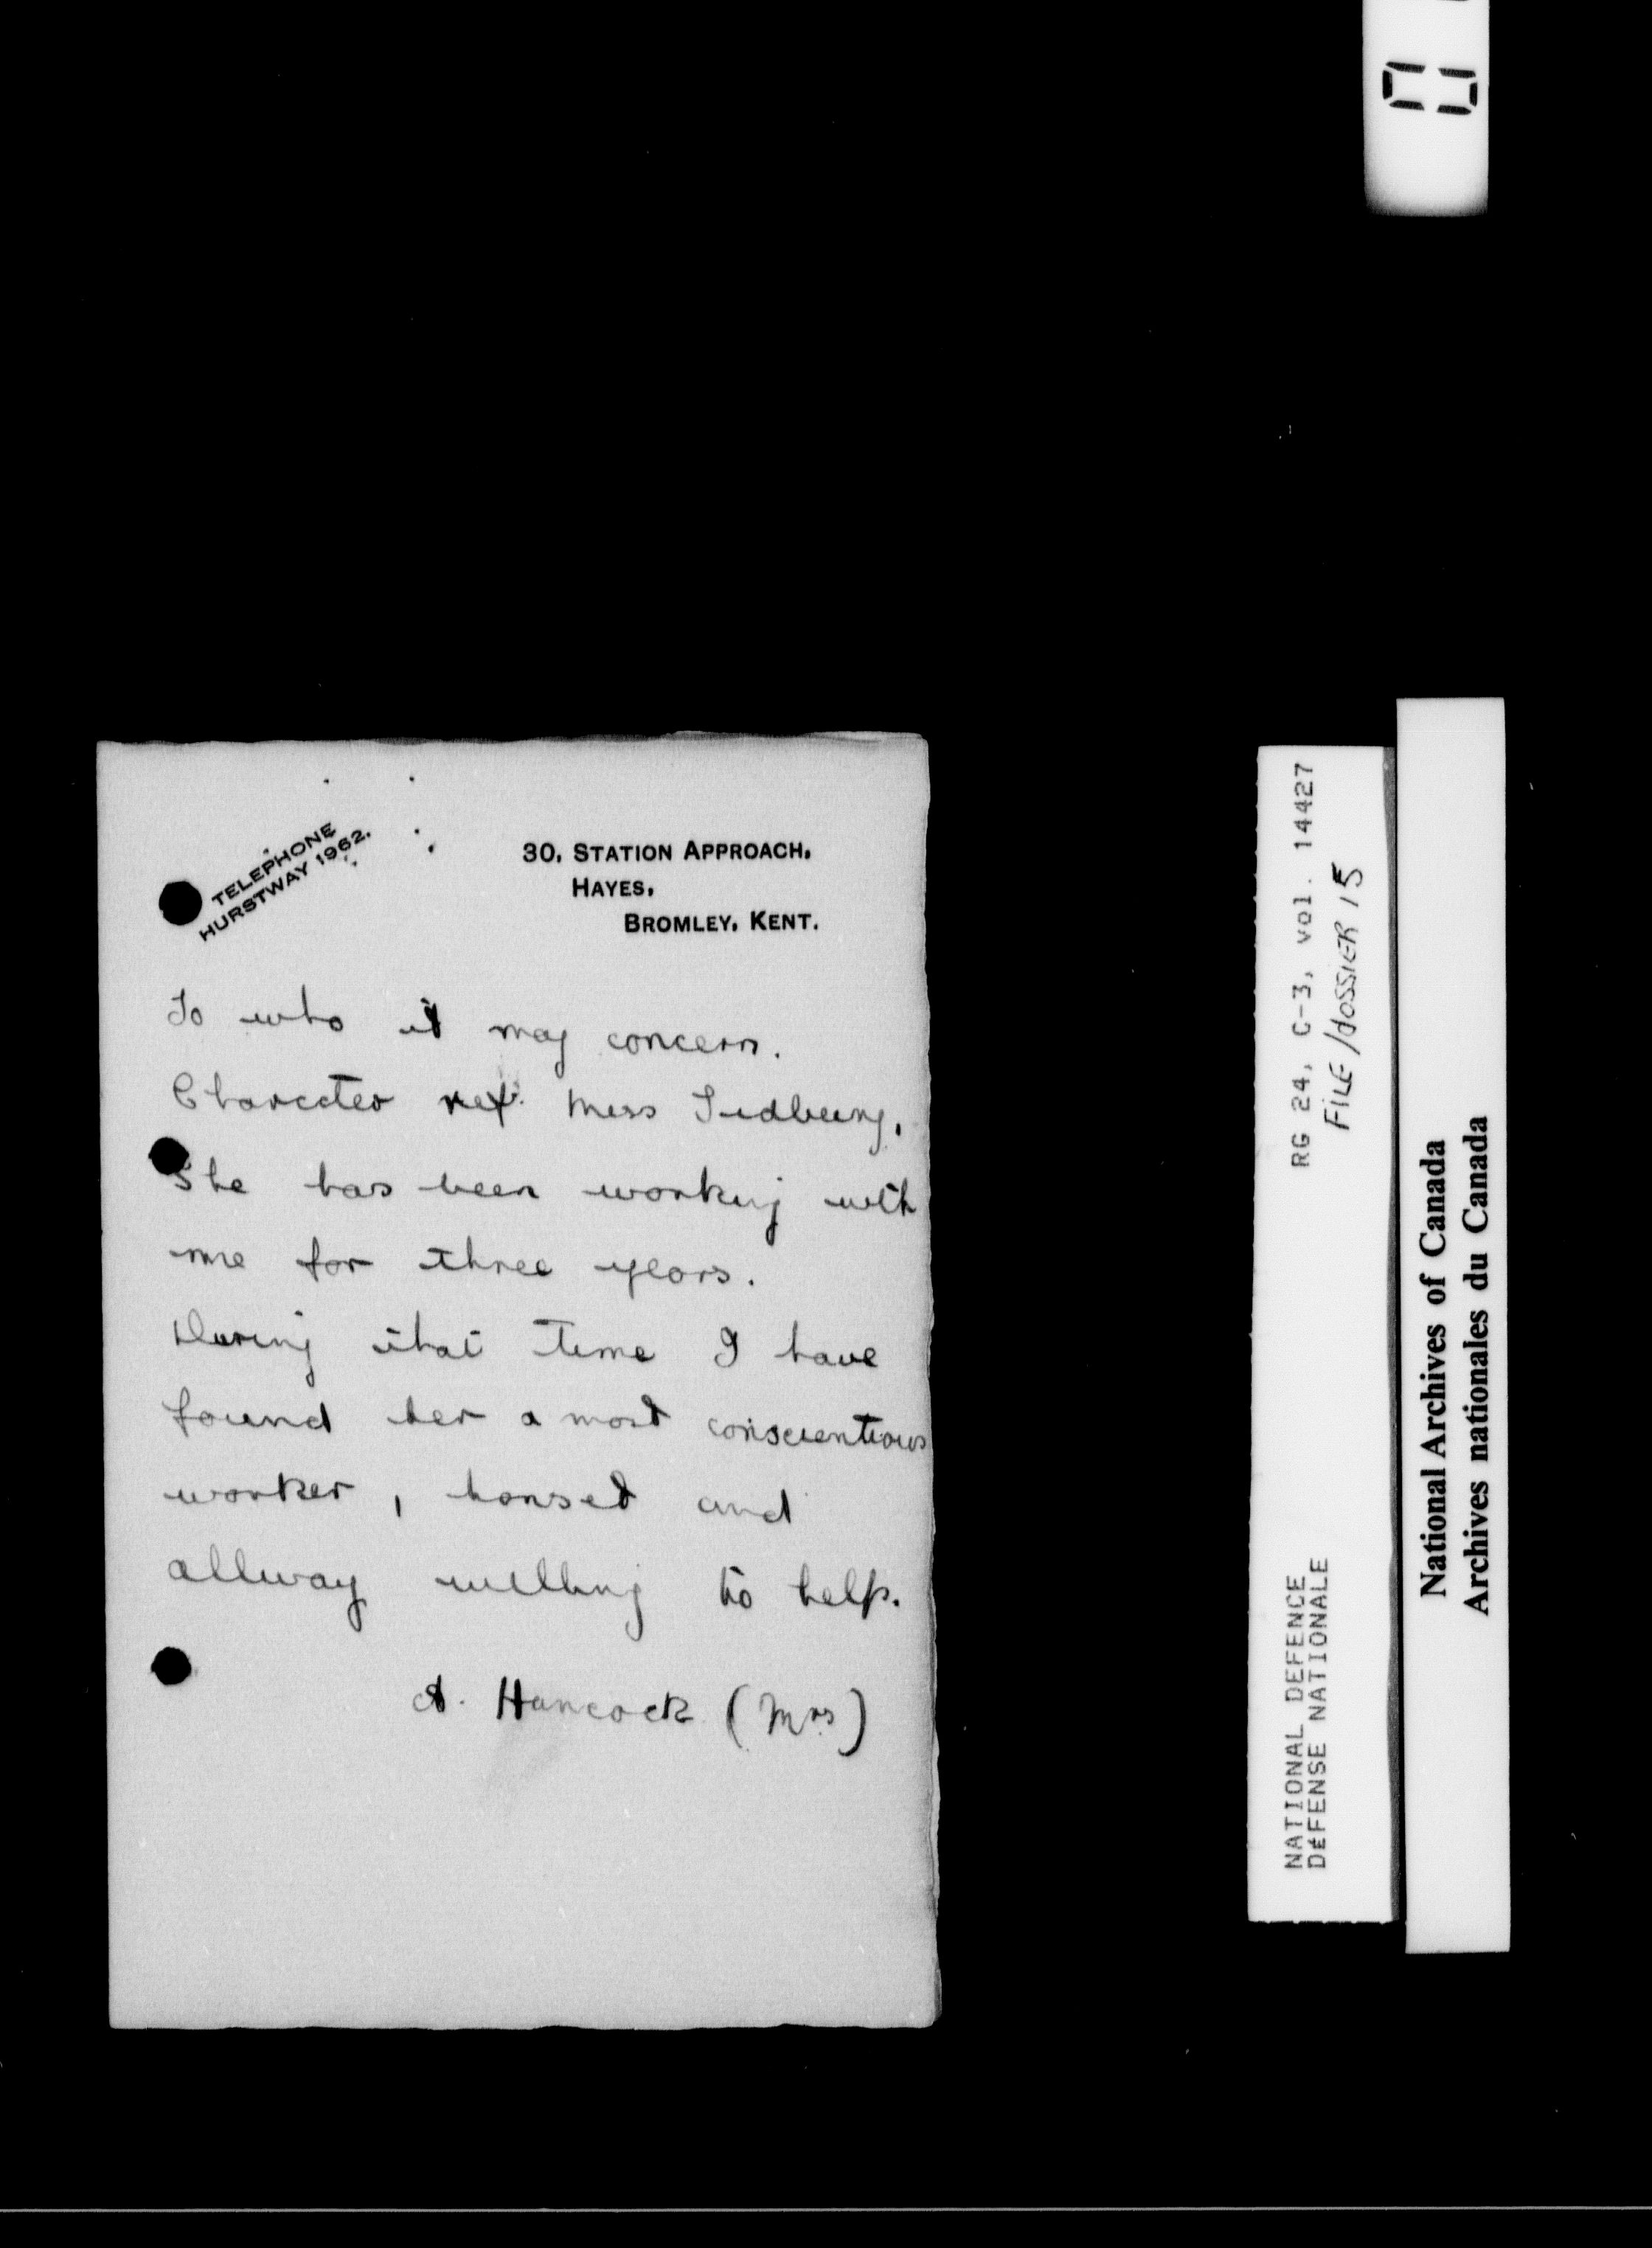 TELEPHONE
HURSTWAY 1962.
30, STATION APPROACH,
HAYES,
BROMLEY, KENT.
To who it may concern.
Charecter ref. Miss
She has been working with
me for three years.
During that time I have
found her a most conscientious
worker, honset and
allway willing to help.
A. Hancock (Mrs)
RG 24, C-3, vol. 14427
FILE/dOSSIER 15
NATIONAL DEFENCE
DÉFENSE NATIONALE
National Archives of Canada
Archives nationales du Canada